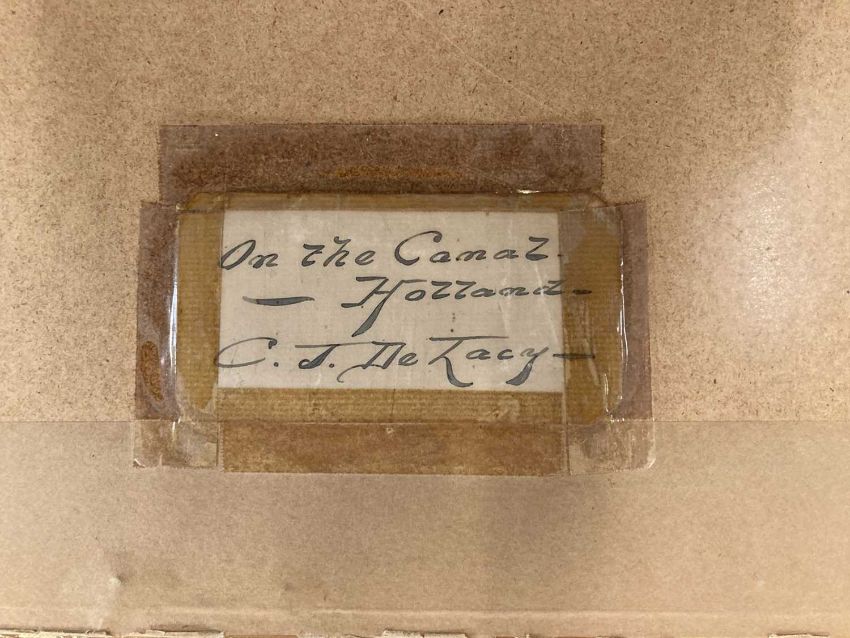 On the Canal
— Holland —
C. J. De Lacy —